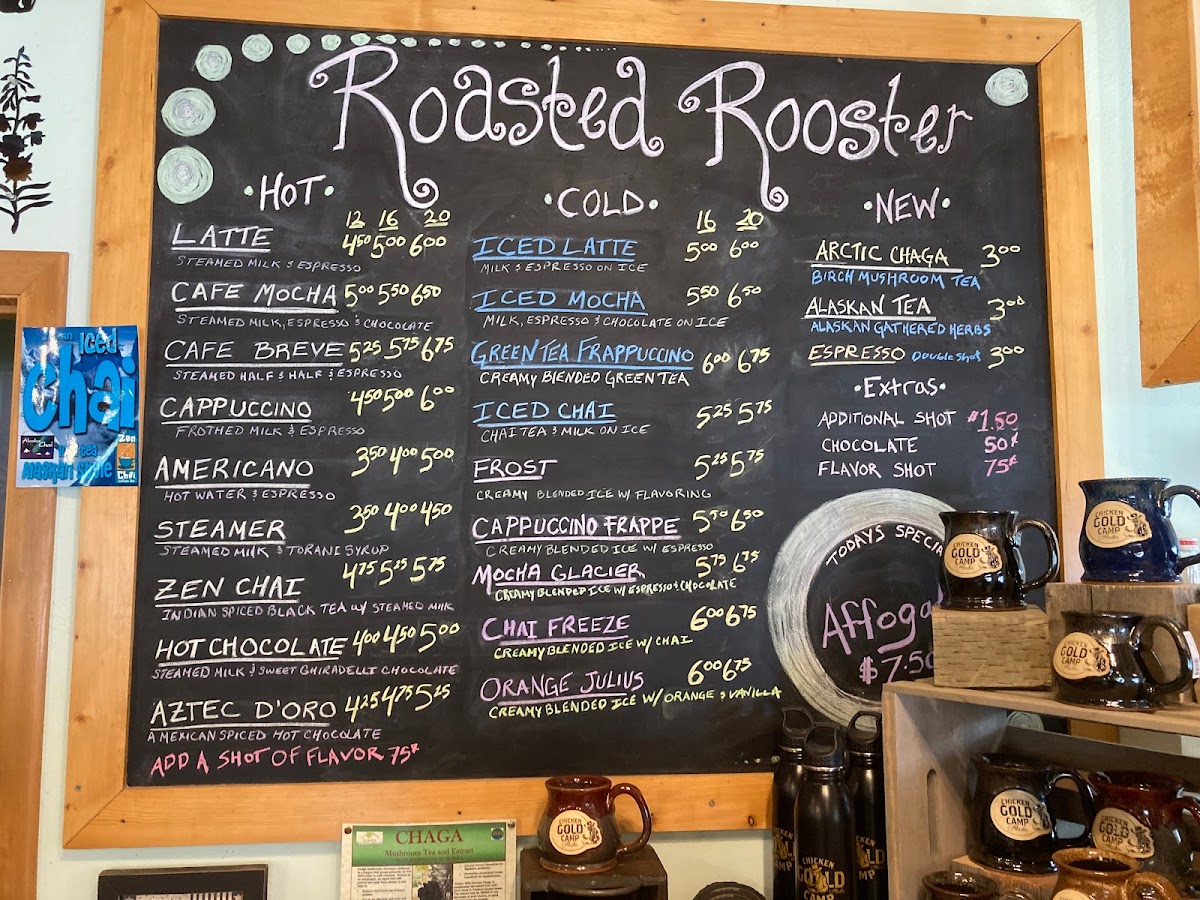 Roasted Rooster
·HOT·
12 16 20
LATTE 4⁵⁰ 5⁰⁰ 6⁰⁰
STEAMED MILK & ESPRESSO
CAFE MOCHA 5⁰⁰ 5⁵⁰ 6⁵⁰
STEAMED MILK, ESPRESSO & CHOCOLATE
CAFE BREVE 5²⁵ 5⁷⁵ 6⁷⁵
STEAMED HALF & HALF & ESPRESSO
CAPPUCCINO 4⁵⁰ 5⁰⁰ 6⁰⁰
FROTHED MILK & ESPRESSO
AMERICANO 3⁵⁰ 4⁰⁰ 5⁰⁰
HOT WATER & ESPRESSO
STEAMER 3⁵⁰ 4⁰⁰ 4⁵⁰
STEAMED MILK & TORANI SYRUP
ZEN CHAI 4⁷⁵ 5²⁵ 5⁷⁵
INDIAN SPICED BLACK TEA W/ STEAMED MILK
HOT CHOCOLATE 4⁰⁰ 4⁵⁰ 5⁰⁰
STEAMED MILK & SWEET GHIRADELLI CHOCOLATE
AZTEC D'ORO 4²⁵ 4⁷⁵ 5²⁵
A MEXICAN SPICED HOT CHOCOLATE
ADD A SHOT OF FLAVOR 75¢
·COLD·
16 20
ICED LATTE 5⁰⁰ 6⁰⁰
MILK & ESPRESSO ON ICE
ICED MOCHA 5⁵⁰ 6⁵⁰
MILK, ESPRESSO & CHOCOLATE ON ICE
GREEN TEA FRAPPUCCINO 6⁰⁰ 6⁷⁵
CREAMY BLENDED GREEN TEA
ICED CHAI 5²⁵ 5⁷⁵
CHAI TEA & MILK ON ICE
FROST 5²⁵ 5⁷⁵
CREAMY BLENDED ICE W/ FLAVORING
CAPPUCCINO FRAPPE 5⁵⁰ 6⁵⁰
CREAMY BLENDED ICE W/ ESPRESSO
MOCHA GLACIER 5⁷⁵ 6⁷⁵
CREAMY BLENDED ICE W/ ESPRESSO & CHOCOLATE
CHAI FREEZE 6⁰⁰ 6⁷⁵
CREAMY BLENDED ICE W/ CHAI
ORANGE JULIUS 6⁰⁰ 6⁷⁵
CREAMY BLENDED ICE W/ ORANGE & VANILLA
·NEW·
ARCTIC CHAGA 3⁰⁰
BIRCH MUSHROOM TEA
ALASKAN TEA 3⁰⁰
ALASKAN GATHERED HERBS
ESPRESSO DOUBLE SHOT 3⁰⁰
·Extras·
ADDITIONAL SHOT $1.50
CHOCOLATE 50¢
FLAVOR SHOT 75¢
TODAYS SPECIA
Affoga
$7.50
Iced
Chai
Alaskan Style
Zen
Chai
CHAGA
Mushroom Tea and Extract
CHICKEN
GOLD
CAMP
CHICKEN
GOLD
CAMP
Alaska
CHICKEN
GOLD
CAMP
CHICKEN
GOLD
CAMP
Alaska
CHICKEN
GOLD
CAMP
CHICKEN
GOLD
CAMP
CHICKEN
GOLD
CAMP